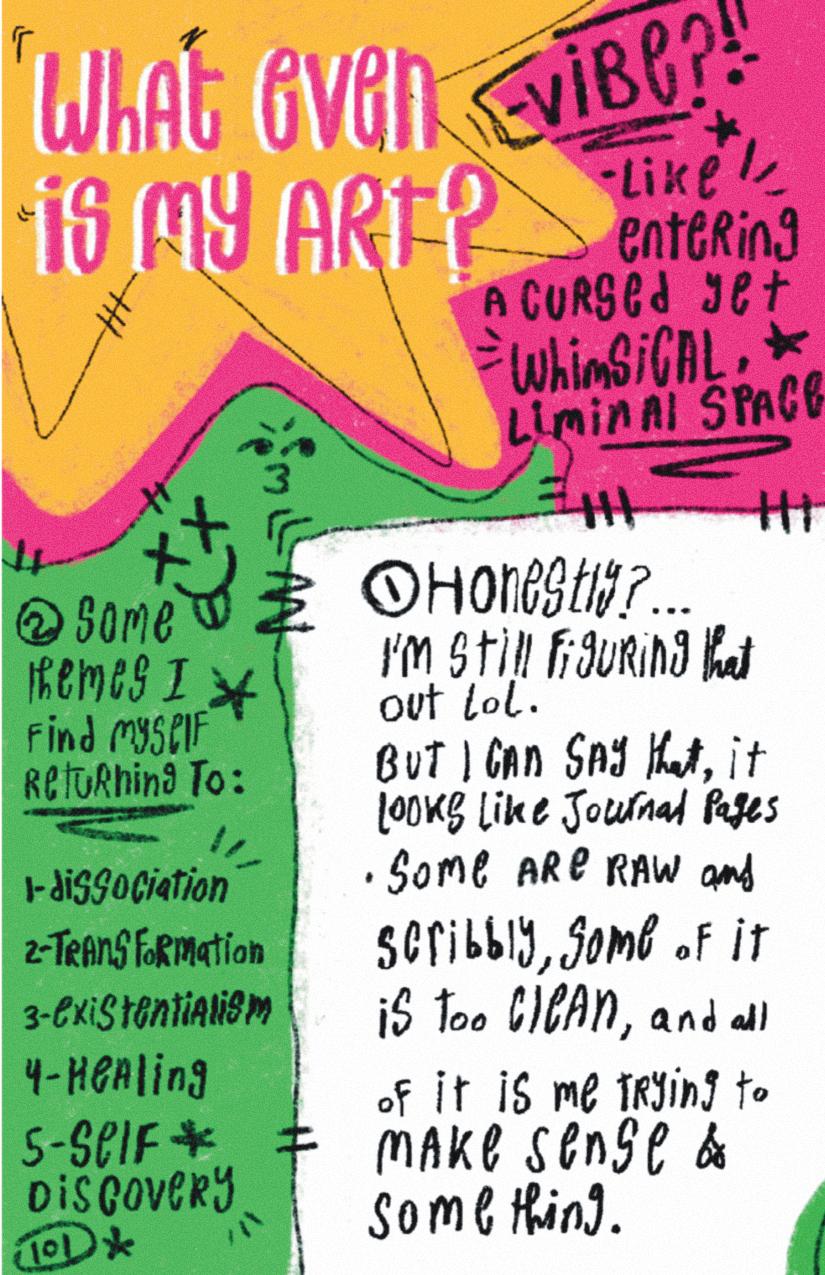 What even
is my ART?
-ViBe?!!
-Like
enteRing
A CURSed yet
WhimSiCAL,
Liminal SPACe
① Honestly?...
I'M Still FiGURing that
out LoL.
BUT I CAN SAY that, it
LOOKS Like Journal Pages
. Some ARe RAW and
scribbly, Some oF it
iS too CleAn, and all
oF it is me TRying to
MAKe Sense &
Something.
② Some
themes I
Find myself
ReTURning To:
1-dissociation
2-TRANSFoRMation
3-existentialism
4-HeAling
5-SelF
DiSCOVeRy
101